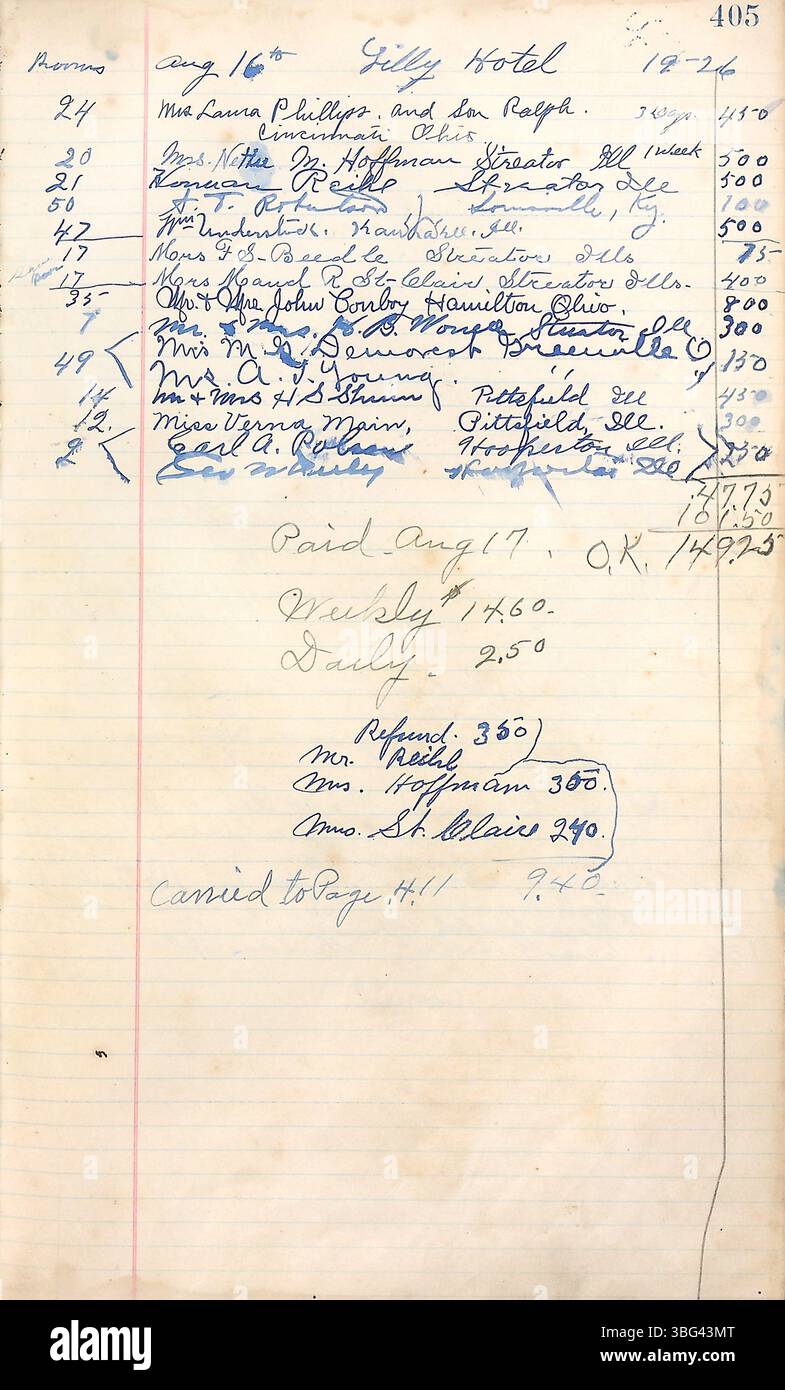 405
Rooms Aug 16th Lilly Hotel 19-26
24 Mrs Laura Phillips. and Son Ralph. 3 Days 450
Cincinnati Ohio
20 Mrs. Nettie M. Hoffman Streator Ill 1 week 500
21 Reihl Streator Ill 500
50 T. Robertson Ky. 100
47 Wm Understock. Kankakee. Ill. 500
17 Mrs F S-Beedle Streator Ills 75
17 Mrs Maud R St-Clair Streator Ills- 400
35 Mr. & Mrs John Conboy Hamilton Ohio. 800
7 Mr. & Mrs. B. Streator Ill 300
49 Mrs M. Demorest Greenville O 150
Ms. A. Young. "
14 Mr & Mrs H S Pittsfield Ill 450
12. Miss Verna Main, Pittsfield, Ill. 300
2 Carl A. Hooperton Ill. 250
Geo Ill
47.75
101.50
Paid Aug 17. O.K. 149.25
Weekly $ 14.60-
Daily - 2.50
Refund. 350
Mr. Reihl
Mrs. Hoffman 350.
Mrs. St. Claire 240.
Carried to Page. 411 9.40-
alamy
alamy
Image ID: 3BG43MT
www.alamy.com